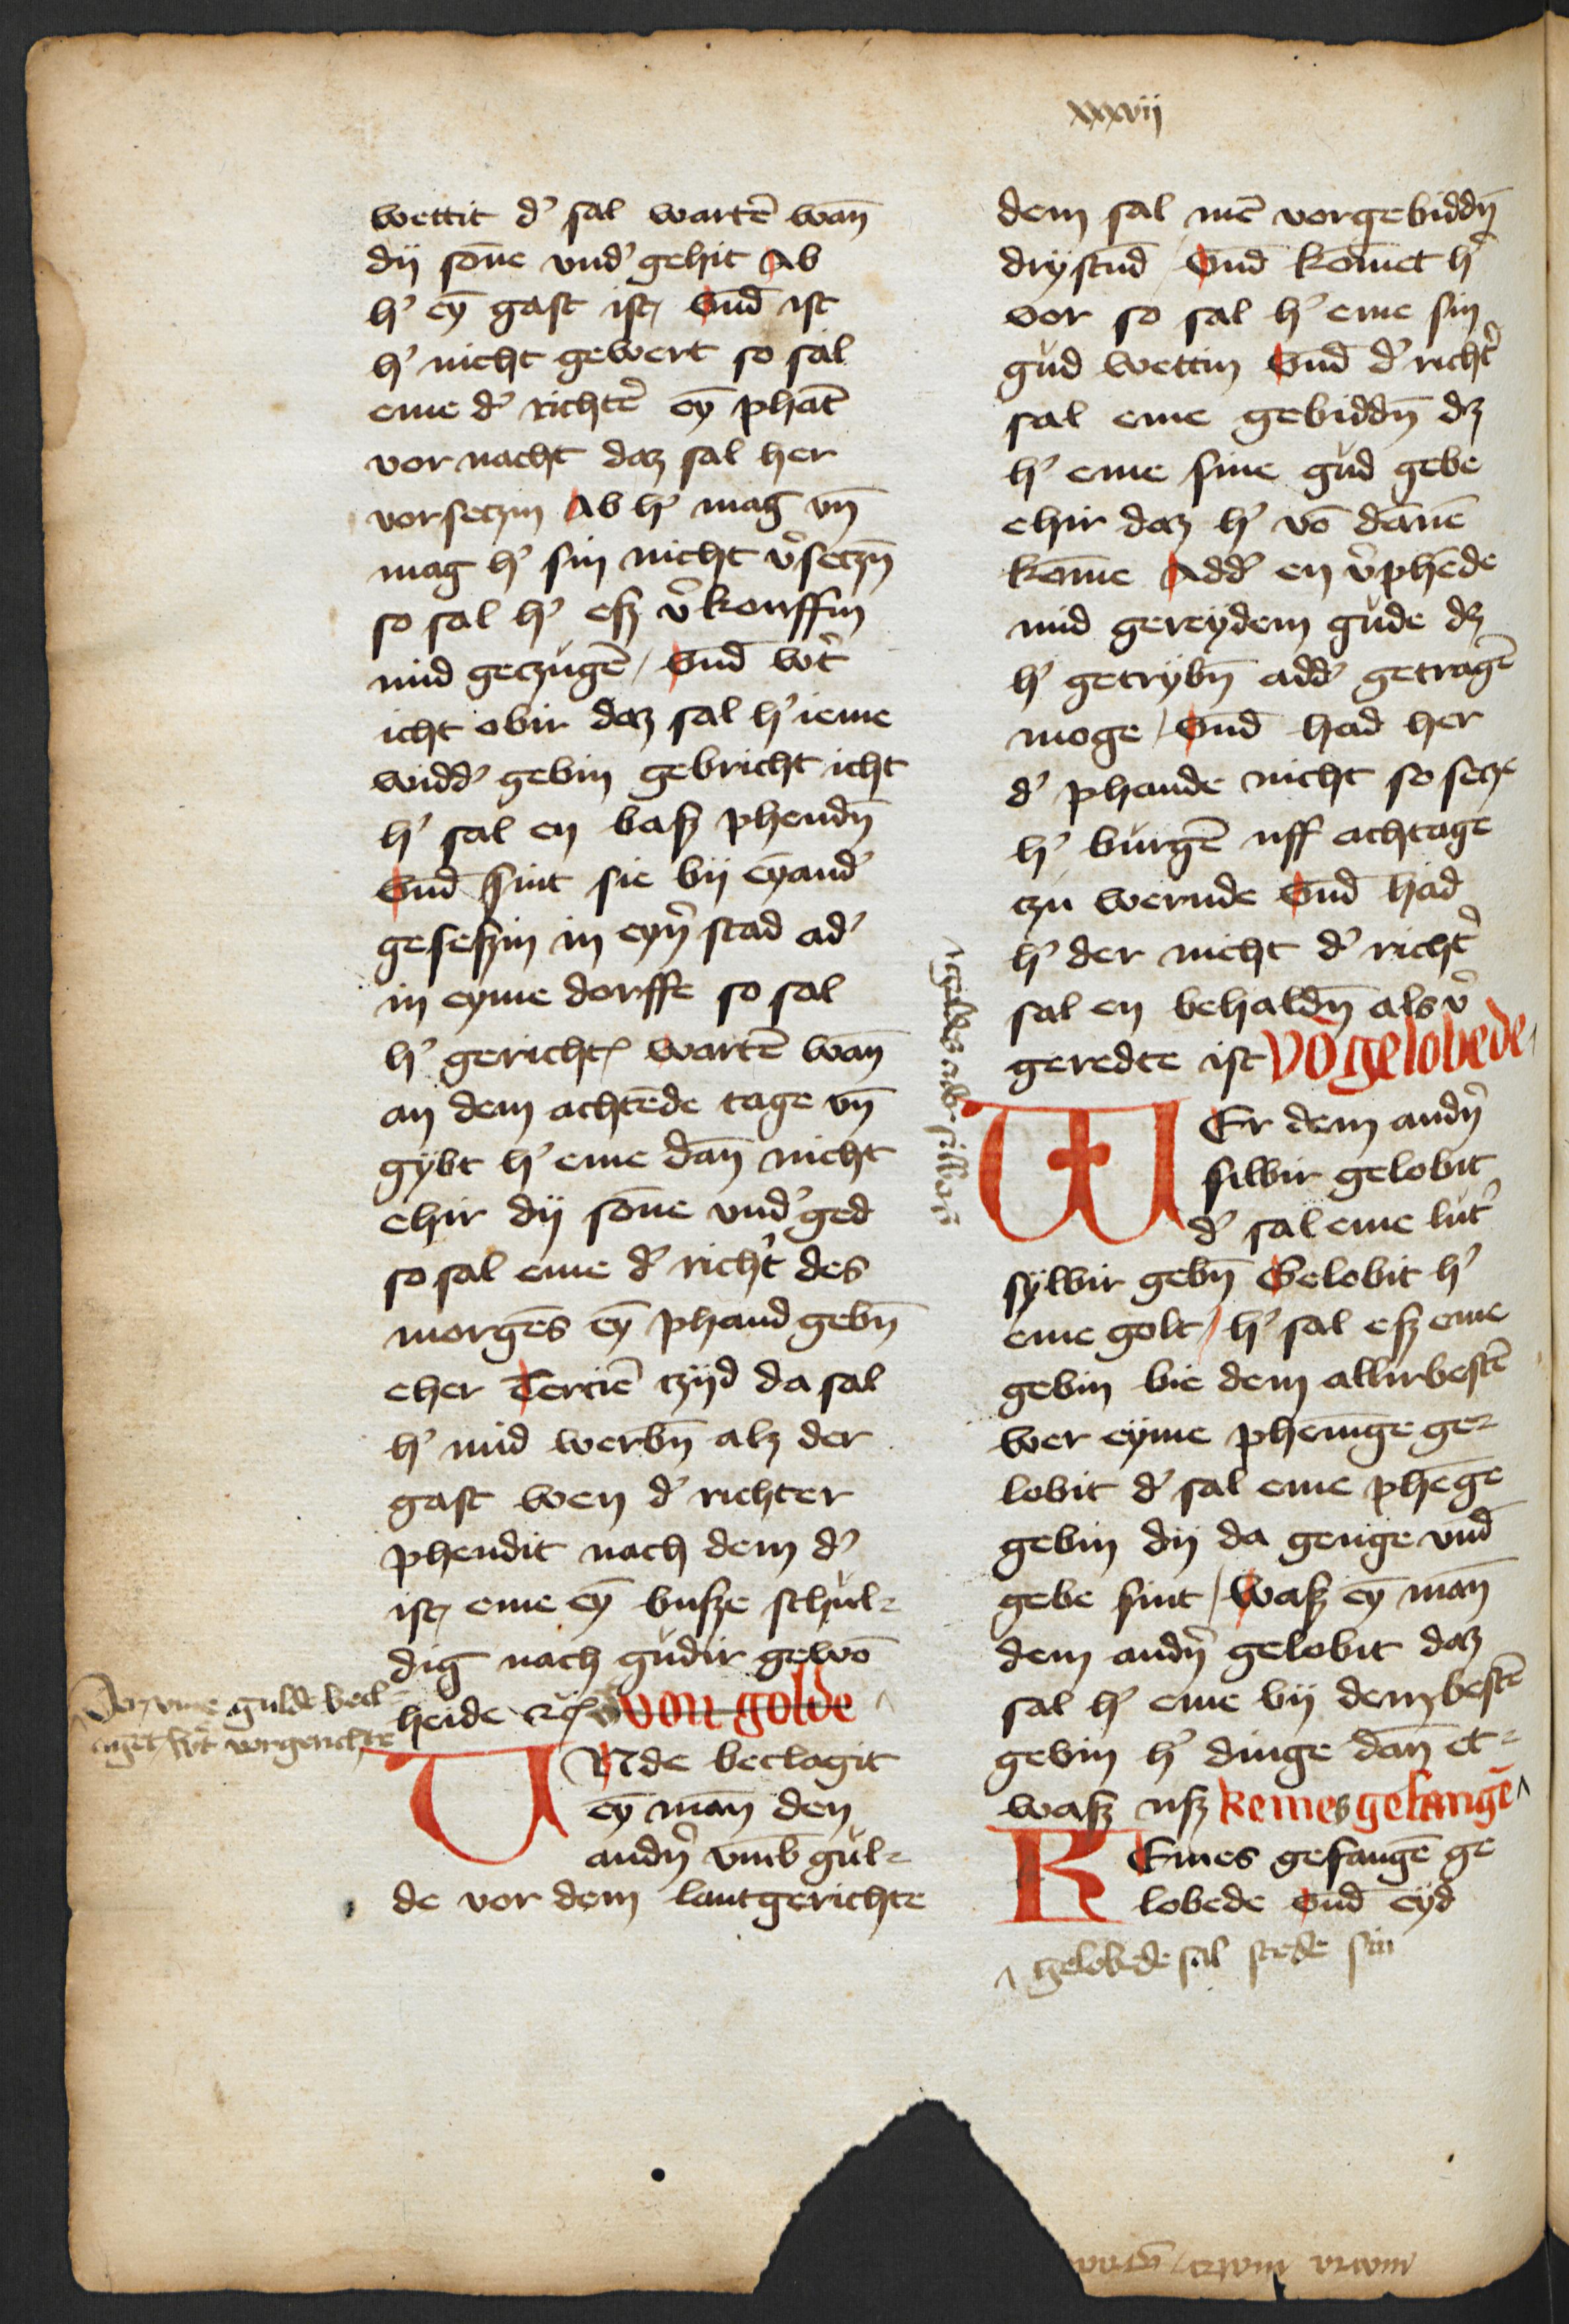 xxxvij
wettit d' sal wartē wan̄
dij son̄e vnd' gehit Ab
h' eȳ gast ist, Vnd̄ ist
h' nicht gewert so sal
eme d' richtē eȳ phāt
vor nacht daz sal her
vorseczin Ab h' mag vn̄
mag h' sin nicht v'seczn̄
so sal h' esz v'kouffin
mid geczugē / Vnd̄ w't
icht obir daz sal h' ieme
widd' gebin gebricht icht
h' sal en basz phendn̄
Vnd̄ sint sie bij eyand'
gesessin in eyn' stad ad'
in eyme dorffe so sal
h' gericht, wartē wan̄
an dem achtēde tage vn̄
gybt h' eme dan̄ nicht
ehir dij son̄e vnd' ged
so sal eme d' richt' des
morgēs eȳ phand gebn̄
eher Terciē czijd da sal
h' mid werbn̄ alz der
gast wen d' richter
phendit nach dem d'
ist, eme eȳ busze schul-
dig nach gudir gewō
heide von golde
VNde beclagit
eȳ man̄ den
andn' vmb̄ gul-
de vor dem lantgerichte
gulde becl-
aget vorgerichte
dem sal mē vorgebiddn̄
drystūd Vnd̄ kom̄et h'
vor so sal h' eme sin
gud wettin Vnd̄ d' richt'
sal eme gebiddn̄ dz
h' eme sine gud gebe
ehir daz h' vō dan̄e
kom̄e Add' en v'phēde
mid gereydem gude dz
h' getrybn̄ add' getragē
moge / Vnd̄ had her
d' phande nicht so secz
h' burgē uff achtage
czu wernde Vnd̄ had
h' der nicht d' richt'
sal en behaldn̄ als v'
geredte ist Vō gelobede
WEr dem andn'
silbir gelobit
d' sal eme lut'
sylbir gebn̄ Gelobit h'
eme golt / h' sal esz eme
gebin bie dem allirbestē
wer eyme phēnige ge-
lobit d' sal eme phēge
gebin dij da genge vnd̄
gebe sint / Wasz eȳ man̄
dem andn' gelobit daz
sal h' eme bij dem bestē
gebin h' dinge dan̄ et-
wasz usz Keines gefangē
KEines gefangē ge
lobede vnd̄ eyd
gelobede sal stede sin
goldes adir silbers